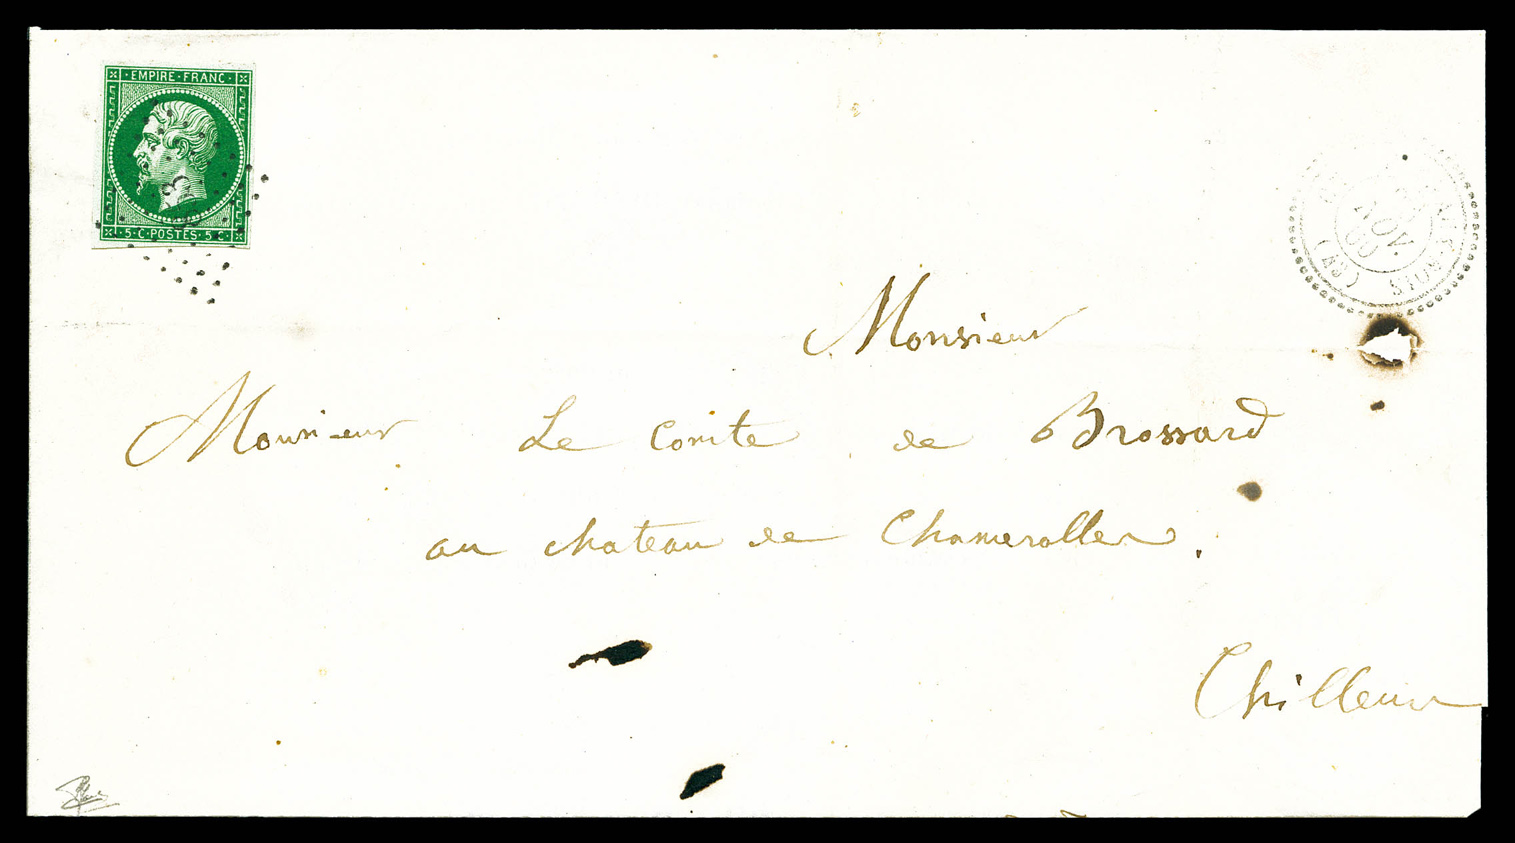 EMPIRE·FRANC·
5·C·POSTES·5·C·
NOV.
(43)
Monsieur
Monsieur Le Comte de Brossard
au chateau de Chamerolles.
Chilleurs